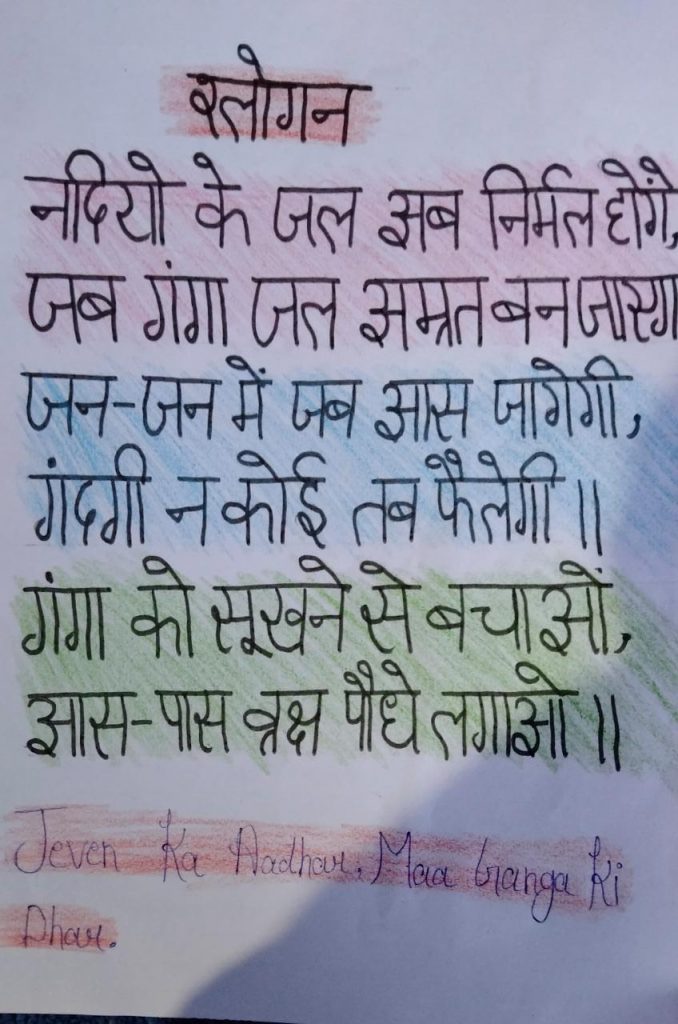 श्लोगन
नदियो के जल अब निर्मल होंगे,
जब गंगा जल अम्रत बन जाएगा
जन-जन में जब आस जागेगी,
गंदगी न कोई तब फैलेगी ||
गंगा को सूखने से बचाओं,
आस-पास व्रक्ष पौधे लगाओ ||
Jeven Ka Aadhar, Maa Ganga Ki
Dhar.